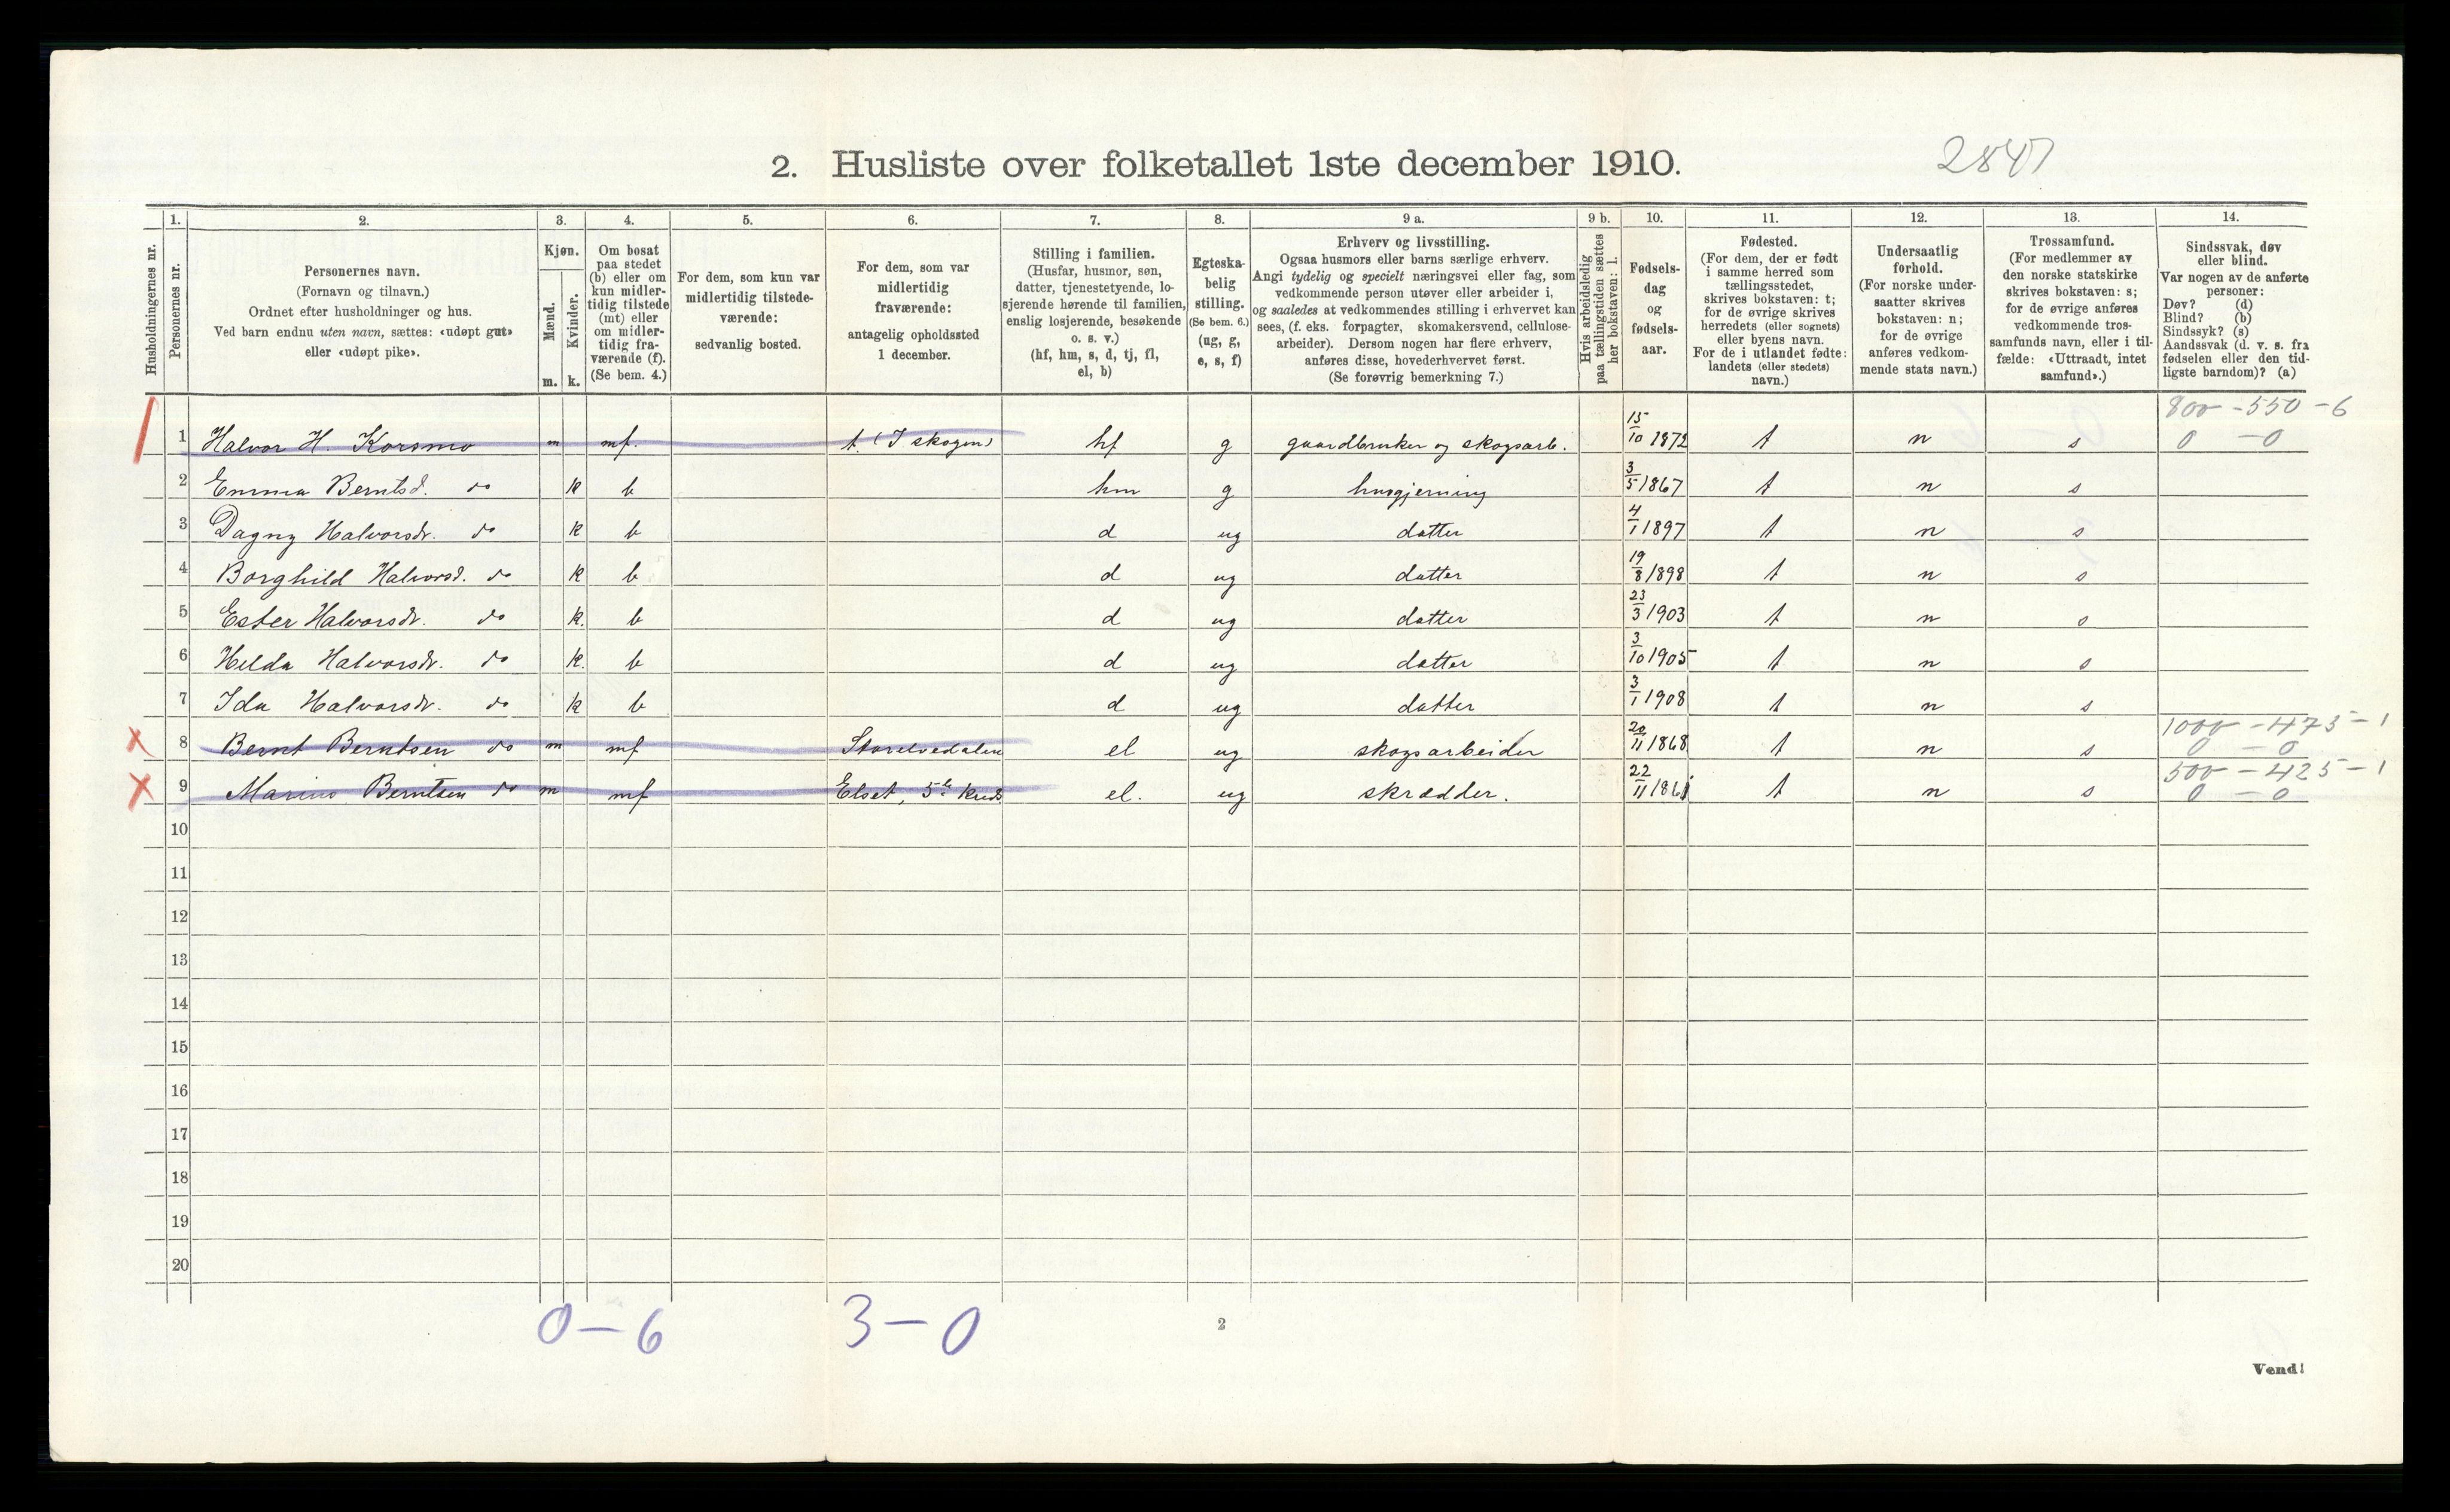 2. Husliste over folketallet 1ste december 1910. 2847
1. 2. 3. 4. 5. 6. 7. 8. 9 a. 9 b. 10. 11. 12. 13. 14.
Husholdningernes nr.
Personernes nr.
Personernes navn.
(Fornavn og tilnavn.)
Ordnet efter husholdninger og hus.
Ved barn endnu uten navn, sættes: «udøpt gut»
eller «udøpt pike».
Kjøn.
Mænd.
Kvinder.
m. k.
Om bosat
paa stedet
(b) eller om
kun midler-
tidig tilstede
(mt) eller
om midler-
tidig fra-
værende (f).
(Se bem. 4.)
For dem, som kun var
midlertidig tilstede-
værende:
sedvanlig bosted.
For dem, som var
midlertidig
fraværende:
antagelig opholdssted
1 december.
Stilling i familien.
(Husfar, husmor, søn,
datter, tjenestetyende, lo-
sjerende hørende til familien,
enslig losjerende, besøkende
o. s. v.)
(hf, hm, s, d, tj, fl,
el, b)
Egteska-
belig
stilling.
(Se bem. 6.)
(ug, g,
e, s, f)
Erhverv og livsstilling.
Ogsaa husmors eller barns særlige erhverv.
Angi tydelig og specielt næringsvei eller fag, som
vedkommende person utøver eller arbeider i,
og saaledes at vedkommendes stilling i erhvervet kan
sees, (f. eks. forpagter, skomakersvend, cellulose-
arbeider). Dersom nogen har flere erhverv,
anføres disse, hovederhvervet først.
(Se forøvrig bemerkning 7.)
Hvis arbeidsledig
paa tællingstiden sættes
her bokstaven: l.
Fødsels-
dag
og
fødsels-
aar.
Fødested.
(For dem, der er født
i samme herred som
tællingsstedet,
skrives bokstaven: t;
for de øvrige skrives
herredets (eller sognets)
eller byens navn.
For de i utlandet fødte:
landets (eller stedets)
navn.)
Undersaatlig
forhold.
(For norske under-
saatter skrives
bokstaven: n;
for de øvrige
anføres vedkom-
mende stats navn.)
Trossamfund.
(For medlemmer av
den norske statskirke
skrives bokstaven: s;
for de øvrige anføres
vedkommende tros-
samfunds navn, eller i til-
fælde: «Uttraadt, intet
samfund».)
Sindssvak, døv
eller blind.
Var nogen av de anførte
personer:
Døv? (d)
Blind? (b)
Sindssyk? (s)
Aandssvak (d. v. s. fra
fødselen eller den tid-
ligste barndom)? (a)
800 - 550 - 6
1 Halvor H. Korsmo m mf. t. (I skogen) hf g gaardbruker og skogsarb. 15/10 1872 t n s 0 - 0
2 Emma Berntsd. do k b hm g husgjerning 3/5 1867 t n s
3 Dagny Halvorsdr. do k b d ug datter 4/1 1897 t n s
4 Borghild Halvorsd. do k b d ug datter 19/8 1898 t n s
5 Ester Halvorsdr. do k. b d ug datter 23/3 1903 t n s
6 Helda Halvorsdr. do k. b d ug datter 3/10 1905 t n s
7 Ida Halvorsdr. do k b d ug datter 3/1 1908 t n s
1000 - 475 - 1
x 8 Bernt Berntsen do m mf Storelvedalen el ug skogsarbeider 20/11 1868 t n s 0 - 0
500 - 425 - 1
x 9 Marius Berntsen do m mf Elset, 5te kreds el. ug skrædder. 22/11 1861 t n s 0 - 0
10
11
12
13
14
15
16
17
18
19
20
0 - 6 3 - 0
2
Vend!